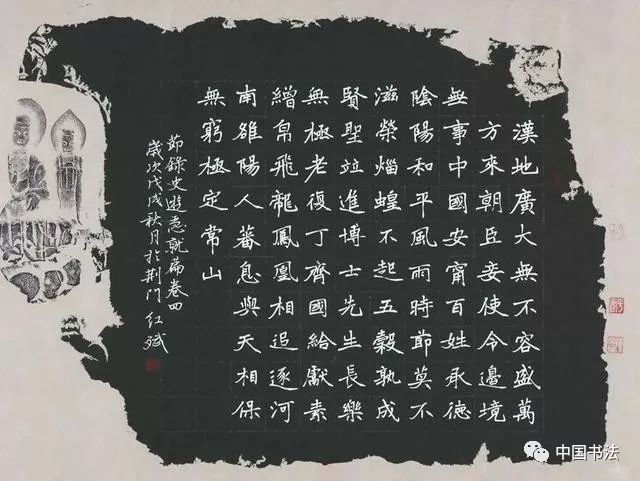 漢地廣大無不容盛萬
方來朝臣妾使令邊境
無事中國安甯百姓承德
陰陽和平風雨時節莫不
滋榮蝗不起五穀孰成
賢聖竝進博士先生長樂
無極老復丁齊國給獻素
繒帛飛龍鳳凰相追逐河
南雒陽人蕃息與天相保
無窮極定常山
節錄史遊急就篇卷四
歲次戊戌秋月於荊門 紅斌
中国书法